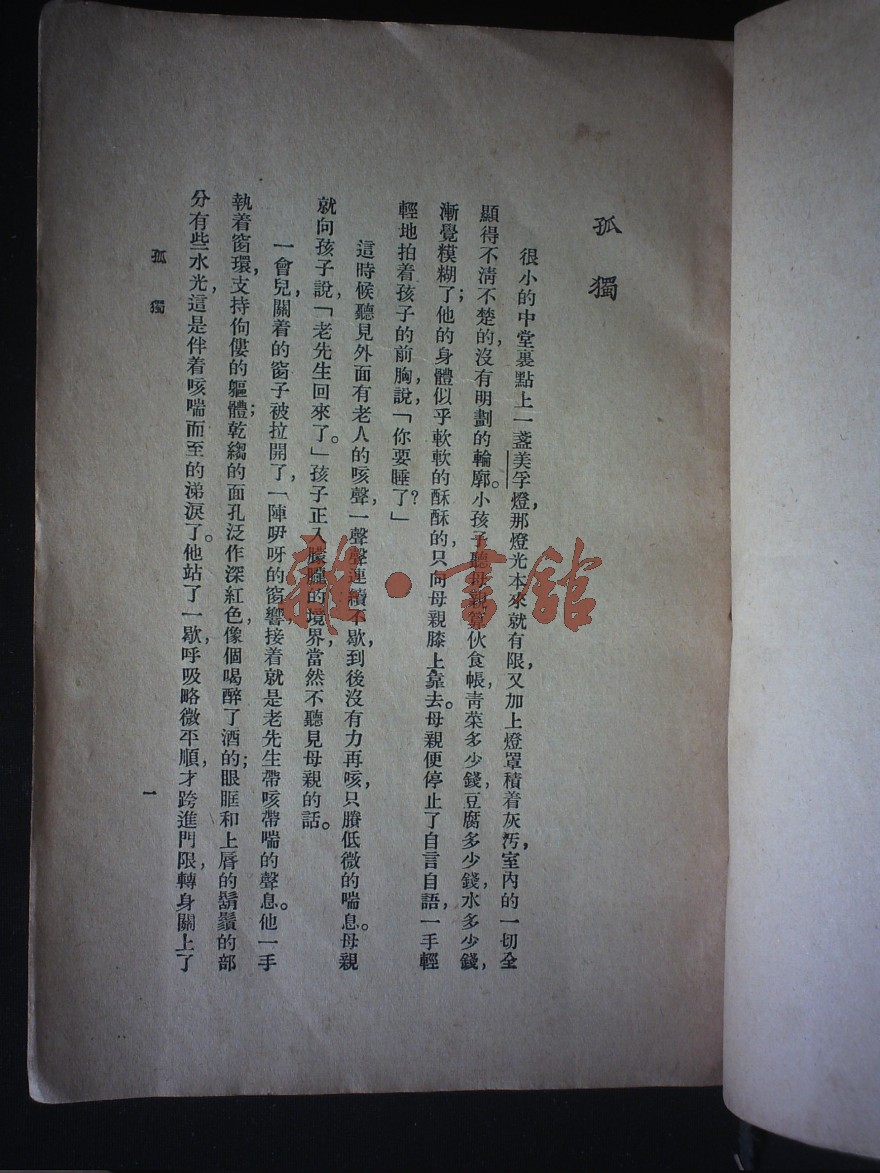 孤獨
很小的中堂裏點上一盞美孚燈，那燈光本來就有限，又加上燈罩積着灰汚，室內的一切全
顯得不淸不楚的，沒有明劃的輪廓。小孩子聽母親算伙食帳，靑菜多少錢，豆腐多少錢，水多少錢，
漸覺糢糊了；他的身體似乎軟軟的酥酥的，只向母親膝上靠去。母親便停止了自言自語，一手輕
輕地拍着孩子的前胸，說，「你要睡了？」
這時候聽見外面有老人的咳聲，一聲聲連續不歇，到後沒有力再咳，只賸低微的喘息。母親
就向孩子說，「老先生回來了。」孩子正入朦朧的境界，當然不聽見母親的話。
一會兒，關着的窗子被拉開了，一陣咿呀的窗響，接着就是老先生帶咳帶喘的聲息。他一手
執着窗環，支持佝僂的軀體；乾縐的面孔泛作深紅色，像個喝醉了酒的；眼眶和上唇的鬍鬚的部
分有些水光，這是伴着咳喘而至的涕淚了。他站了一歇，呼吸略微平順，才跨進門限，轉身關上了
孤獨
一
雜·書館